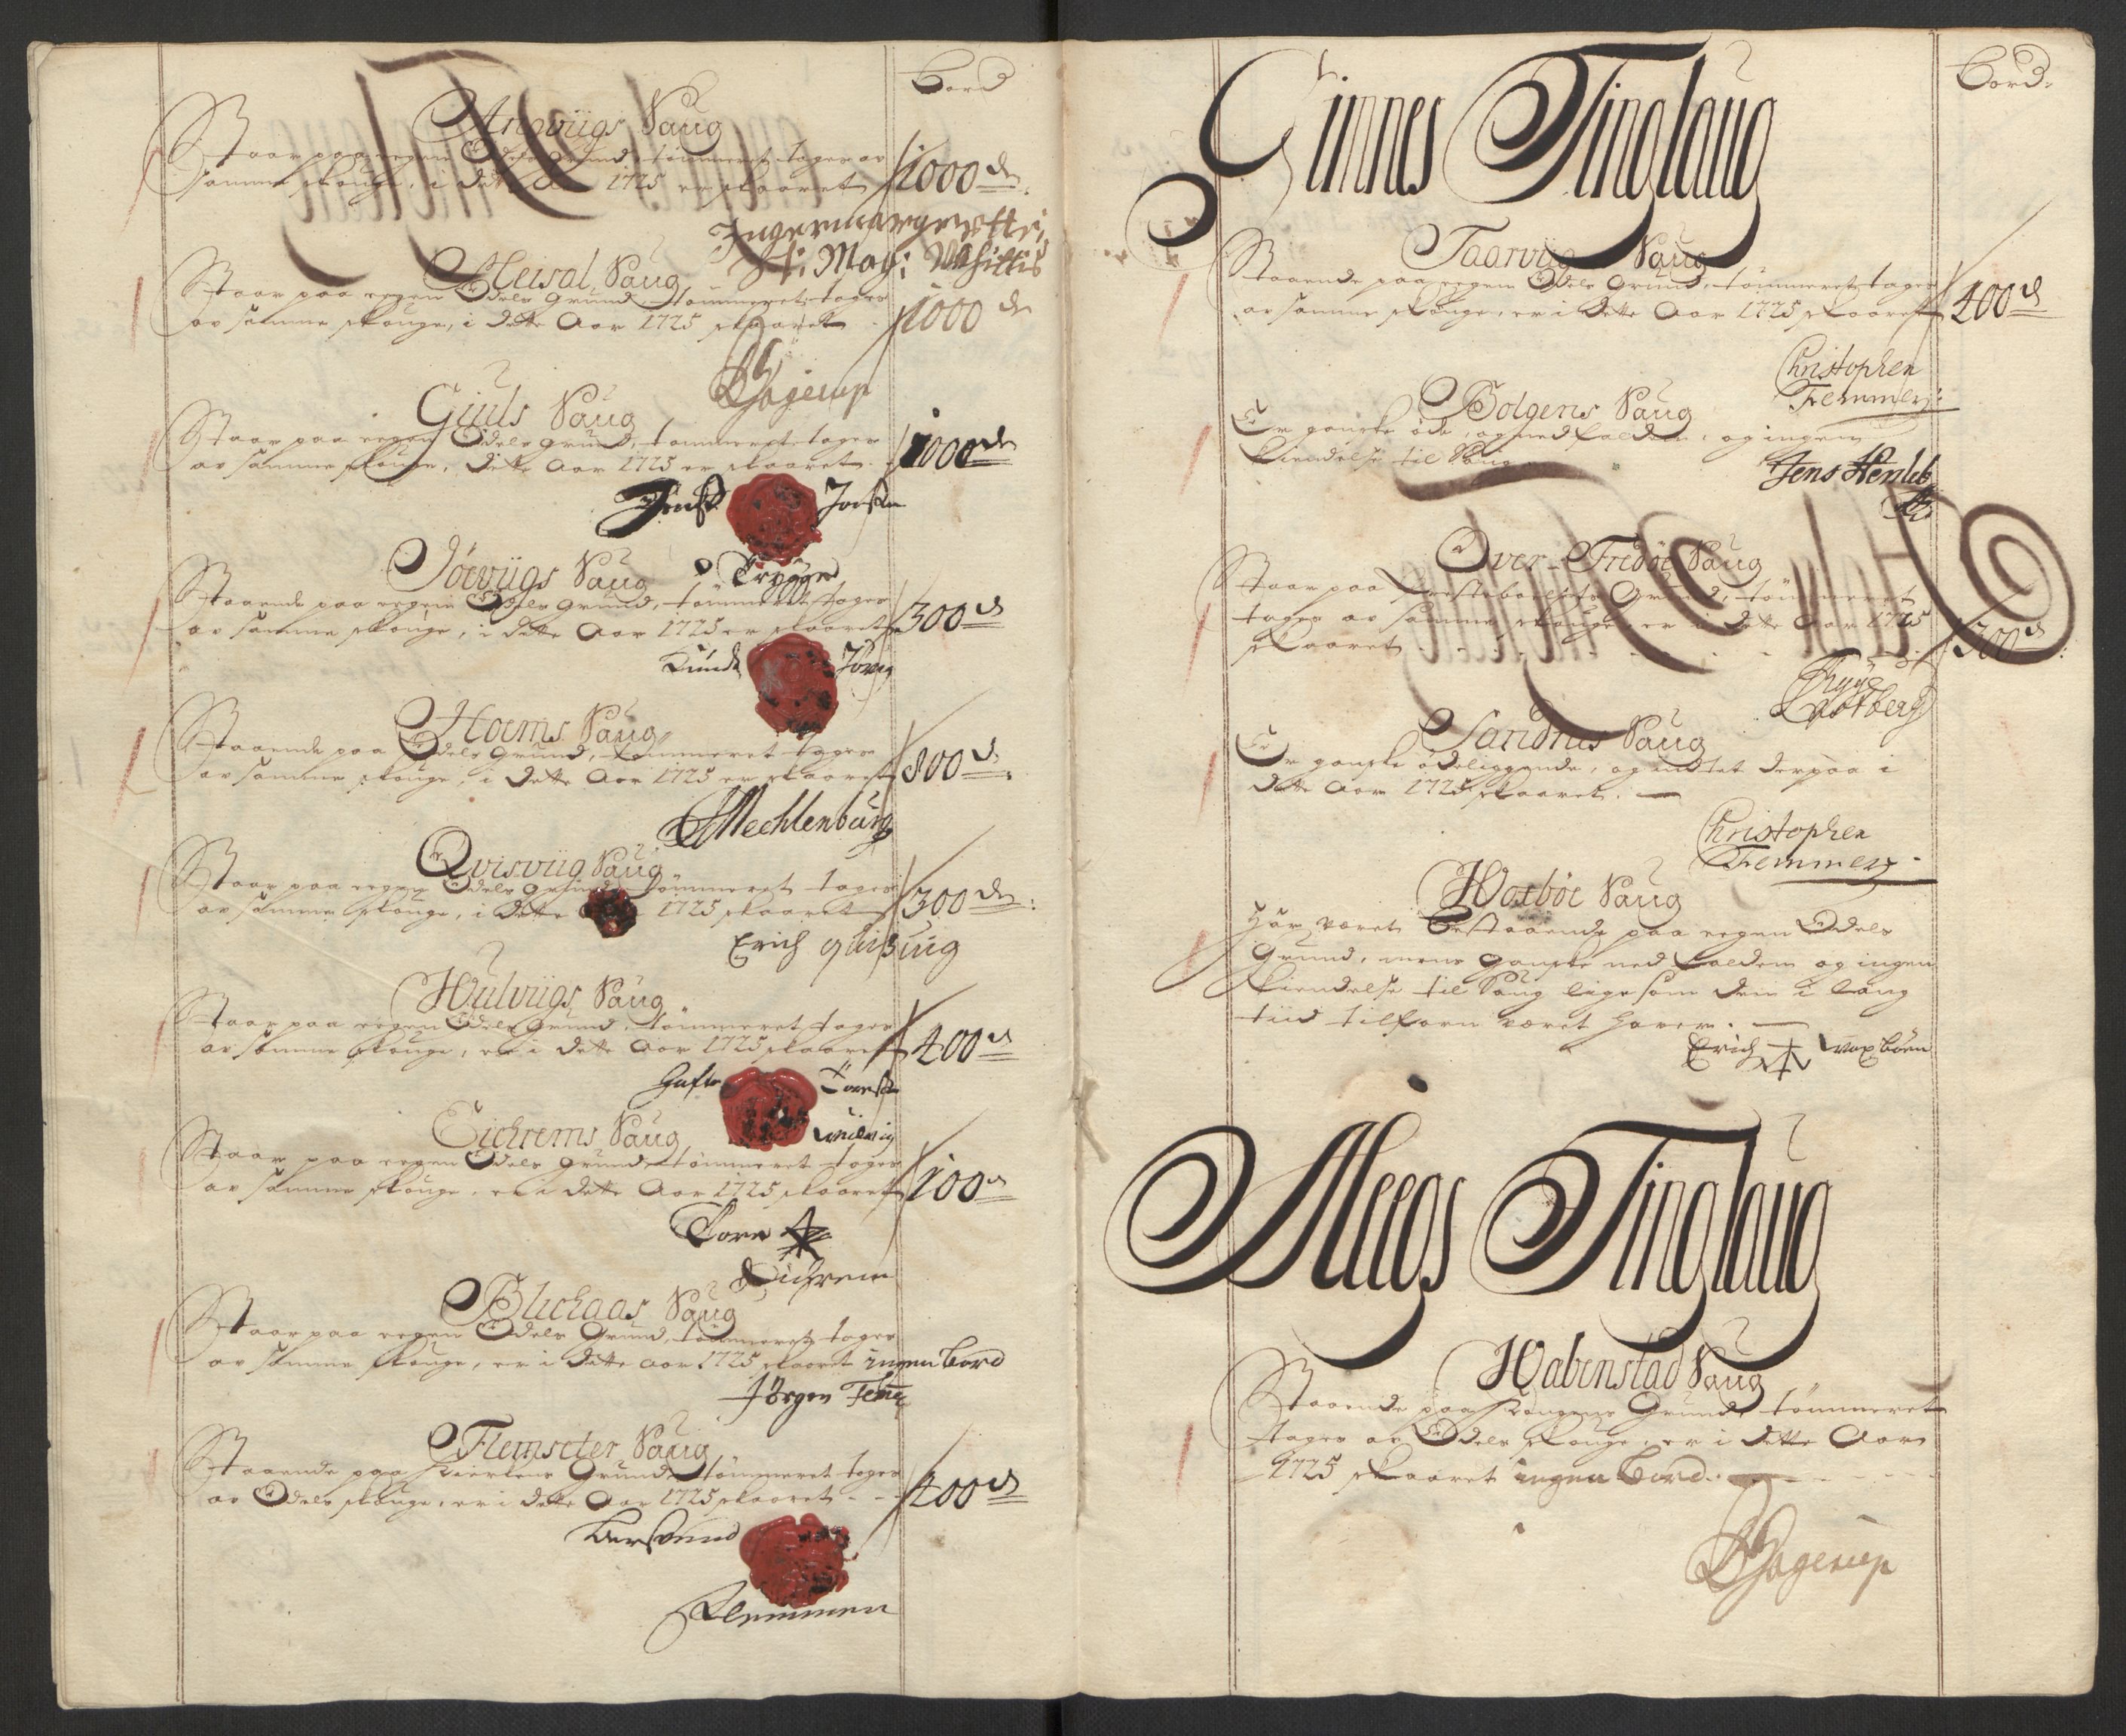 Bord
Angviigs Saug
Staar paa eegen Odels Grund, tømmeret tages av
samme skouge, i dette Aar 1725 er skaaret 1000 de
Ingermargrette
Sl: Mag: Whittis
Meisal Saug
Staar paa eegen Odels Grund, tømmeret tages
av samme skouge, i dette Aar 1725 skaaret 1000 de
Hagerup
Giuls Saug
Staar paa eegen Odels Grund, tømmeret tages
av samme skouge, i dette Aar 1725 er skaaret 1000 de
Jens Joensen
Trygge
Jørviigs Saug
Staaende paa eegen Odels Grund, tømmeret tages
av samme skouge, i dette Aar 1725 er skaaret 300 d
Knud Jørvig
Hoems Saug
Staaende paa Odels Grund, tømmeret tages
av samme skouge, i dette Aar 1725 er skaaret 800 d
Mechlenburg
Qvisviig Saug
Staar paa eegen Odels Grund, tømmeret tages
av samme skouge, i dette 1725 skaaret 300 de
Erich quisuig
Hulviigs Saug
Staar paa eegen Odels Grund, tømmeret tages
av samme skouge, er i dette Aar 1725 skaaret 400 d
Eichrems Saug
Staar paa eegen Odels Grund, tømmeret tages
av samme skouge, er i dette Aar 1725 skaaret 100 d
Tore
Eichrem
Blichaas Saug
Staar paa eegen Odels Grund, tømmeret tages
av samme skouge, er i dette Aar 1725 skaaret ingen bord
Jørgen
Flemseter Saug
Staaende paa Kierkens Grund, tømmeret tages
av Odels skouge, er i dette Aar 1725 skaaret 400 d
Flemmen
Bord
Ginnes Tinglaug
Taarviig Saug
Staaende paa eegen Odels Grund, tømmeret tages
av samme skouge, er i dette Aar 1725 skaaret 400 d
Christopher
Femmer
Bolgens Saug
Er ganske øde, og nedfalden, og ingen
kiendelse til Saug
Jens Hersleb
Over-Fredøe Saug
Staar paa Præstebordets Grund, tømmeret
tages av samme skouge, er i dette Aar 1725
skaaret 300 d
Røtberg
Sandnes Saug
Er ganske ødeliggende, og intet derpaa i
dette Aar 1725 skaaret.
Christopher
Femmer
Woxbøe Saug
Har været bestaaende paa eegen Odels
Grund, mens ganske ned falden og ingen
kiendelse til Saug lige som den i lang
tiid tilforn været haver.
Erich woxbøen
Aleegs Tinglaug
Habenstad Saug
Staaende paa Kongens Grund, tømmeret
tages av Odels skouge, er i dette Aar
1725 skaaret ingen Bord.
Hagerup